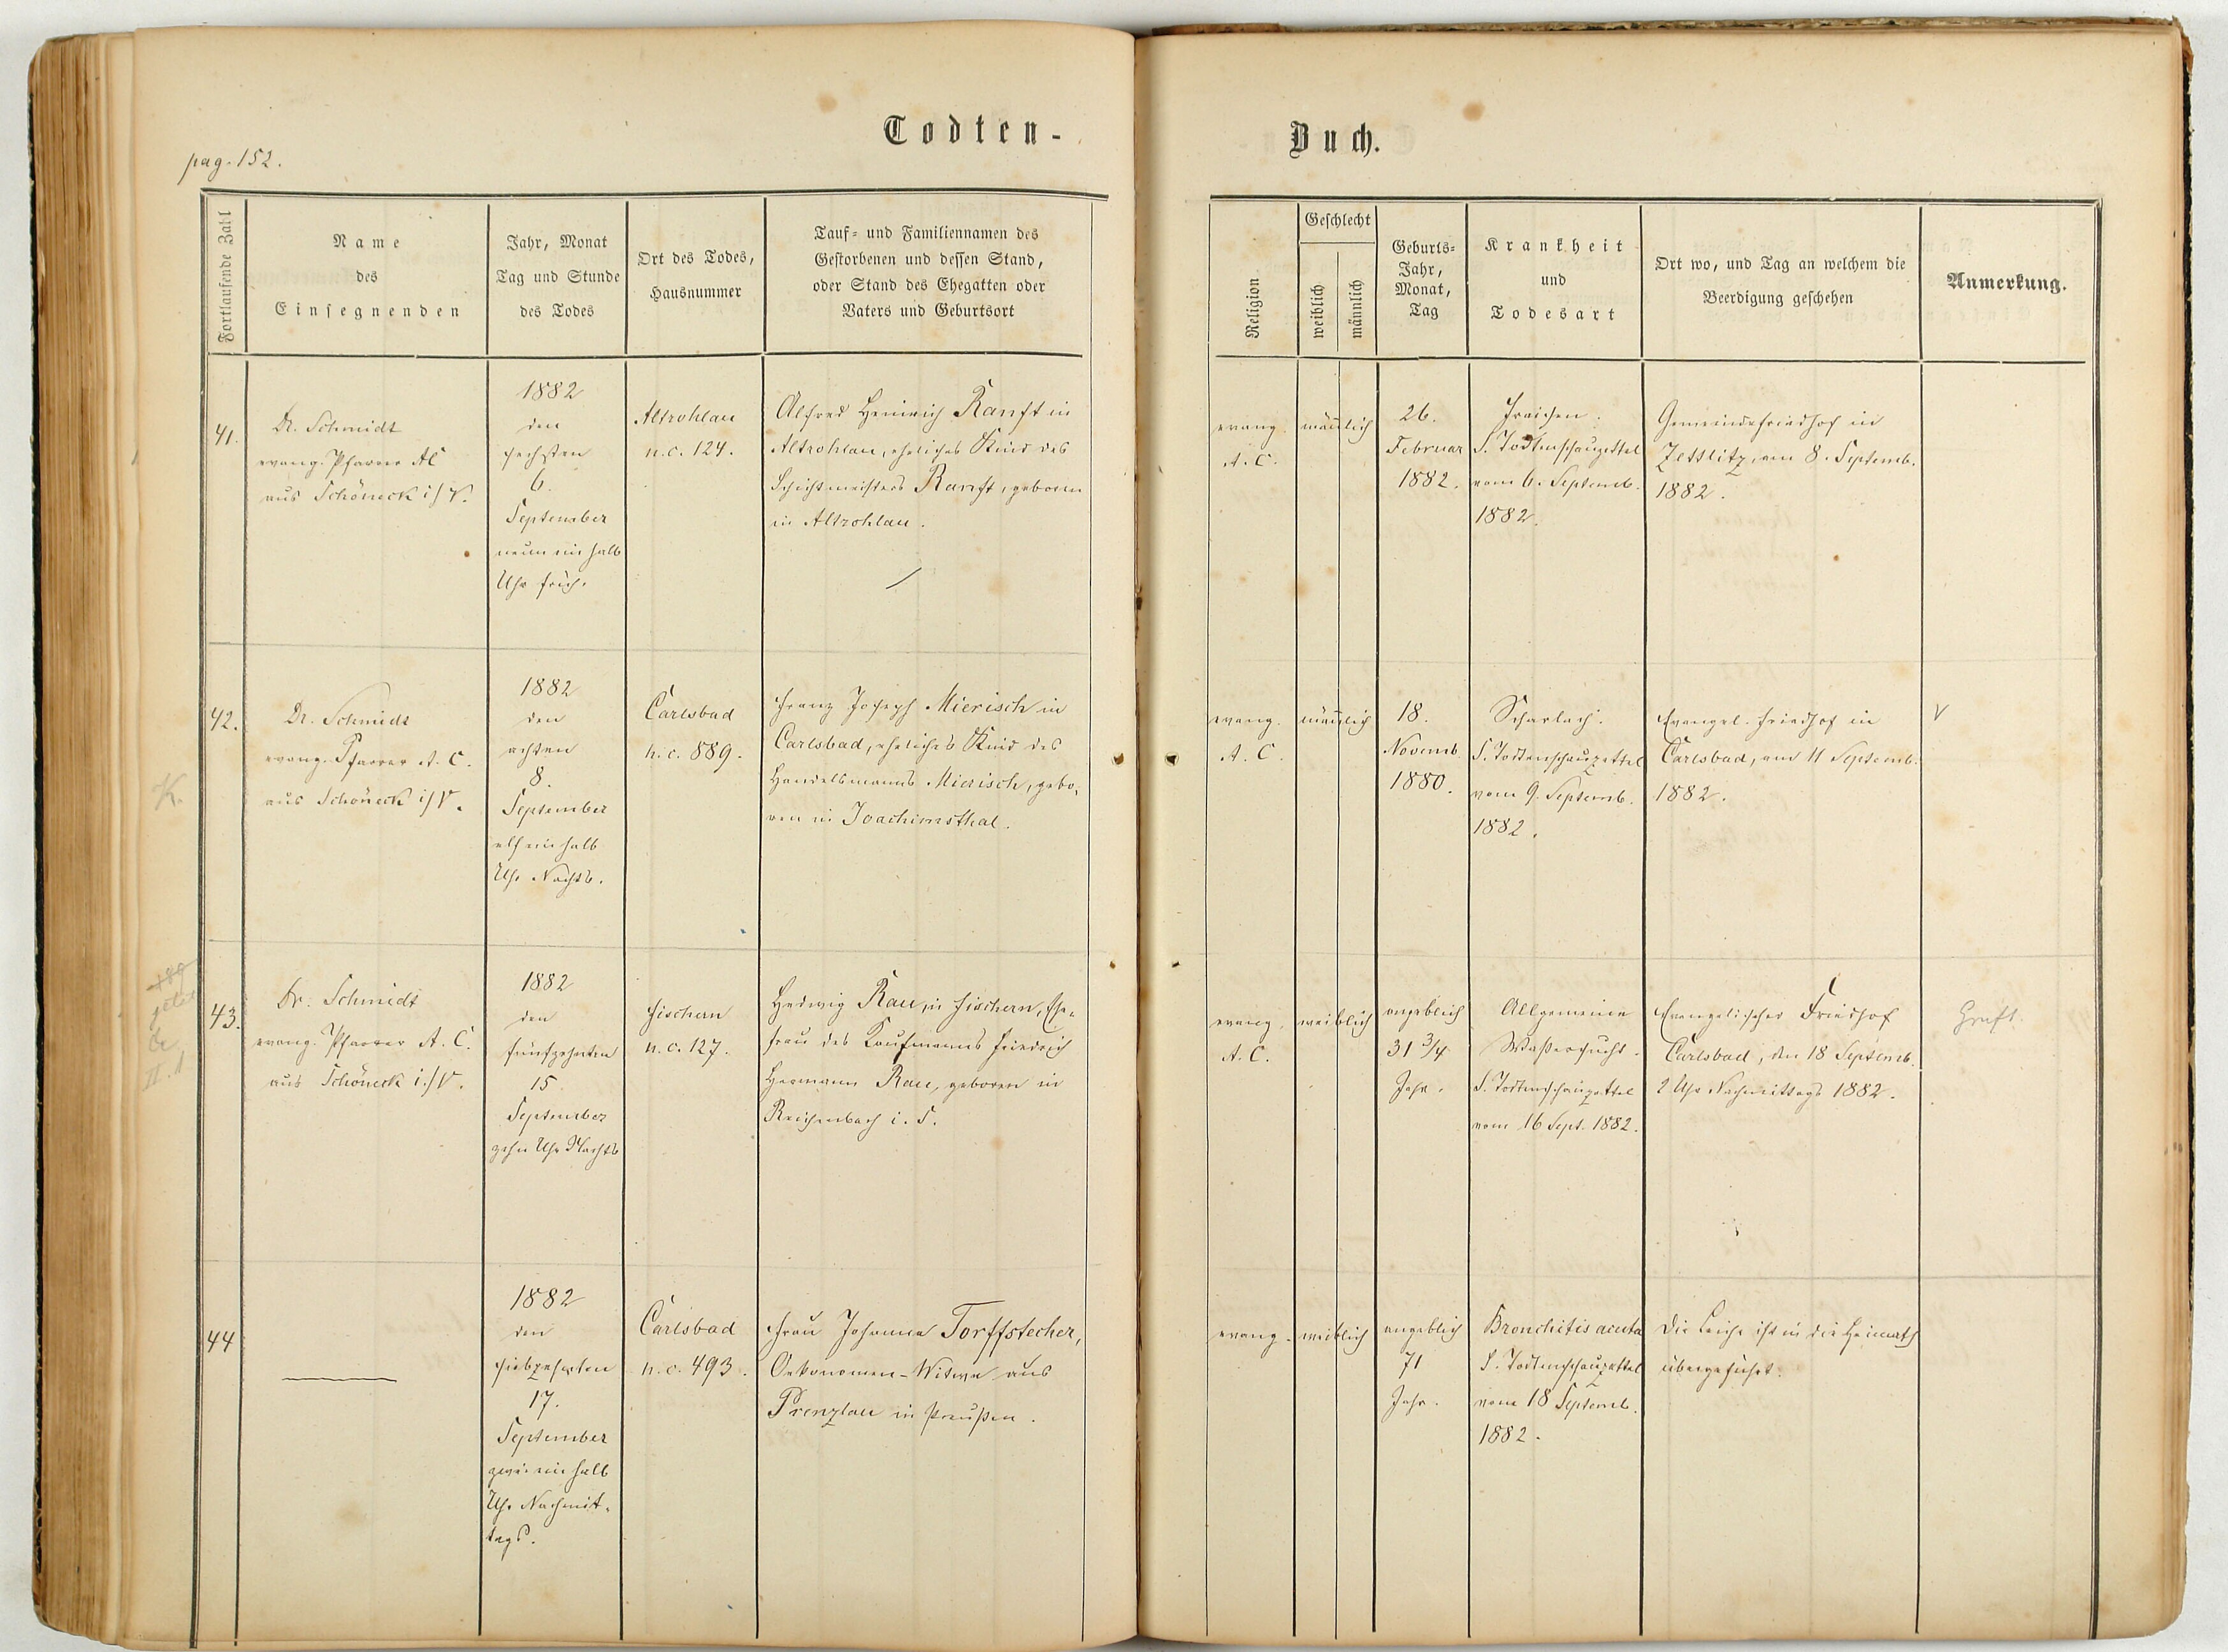 Todten-
Buch.
pag. 152.
Fortlaufende Zahl
Name
des
Einsegnenden
Jahr, Monat
Tag und Stunde
des Todes
Ort des Todes,
Hausnummer
Tauf- und Familiennamen des
Gestorbenen und dessen Stand,
oder Stand des Ehegatten oder
Vaters und Geburtsort
Religion
Geschlecht
weiblich
männlich
Geburts-
Jahr,
Monat,
Tag
Krankheit
und
Todesart
Ort wo, und Tag an welchem die
Beerdigung geschehen
Anmerkung.
41.
Dr. Schmidt
evang. Pfarrer AC
aus Schöneck i/V.
1882
den
sechsten
6.
September
neun ein halb
Uhr früh.
Altrohlau
n.c. 124.
Alfred Heinrich Ranft in
Altrohlau, eheliches Kind des
Schichtmeisters Ranft, geboren
in Altrohlau.
evang.
A. C.
männlich
26.
Februar
1882.
Fraisen.
S. Todtenschauzettel
vom 6. Septemb.
1882.
Gemeindefriedhof in
Zettlitz, am 8. Septemb.
1882.
42.
Dr. Schmidt
evang. Pfarrer A. C.
aus Schöneck i/V.
1882
den
achten
8.
September
elf ein halb
Uhr Nachts.
Carlsbad
n.c. 889.
Franz Joseph Mierisch in
Carlsbad, eheliches Kind des
Handelsmanns Mierisch, gebo-
ren in Joachimsthal.
evang.
A. C.
männlich
18.
Novemb.
1880.
Scharlach.
S. Todtenschauzettel
vom 9. Septemb.
1882.
Evangel. Friedhof in
Carlsbad, am 11 Septemb.
1882.
V
K.
43.
Dr. Schmidt
evang. Pfarrer A. C.
aus Schöneck i./V.
1882
den
fünfzehnten
15
September
zehn Uhr Nachts
Fischern
n.c. 127.
Hedwig Rau, in Fischern, Ehe-
frau des Kaufmanns Friedrich
Hermann Rau, geboren in
Reichenbach i. S.
evang.
A. C.
weiblich
angeblich
31 3/4
Jahr.
Allgemeine
Waßersucht.
S. Todtenschauzettel
vom 16 Sept. 1882.
Evangelischer Friedhof
Carlsbad, den 18 Septemb.
2 Uhr Nachmittags 1882.
Gruft.
II. 1
44
1882
den
siebzehnten
17.
September
zwei ein halb
Uhr Nachmit-
tags.
Carlsbad
n.c. 493.
Frau Johanna Torffstecher,
Oekonomen-Witwe aus
Prenzlau in Preußen.
evang.
weiblich
angeblich
71
Jahr.
Bronchitis acuta
S. Todtenschauzettel
vom 18 Septemb.
1882.
Die Leiche ist in die Heimath
übergeführt.